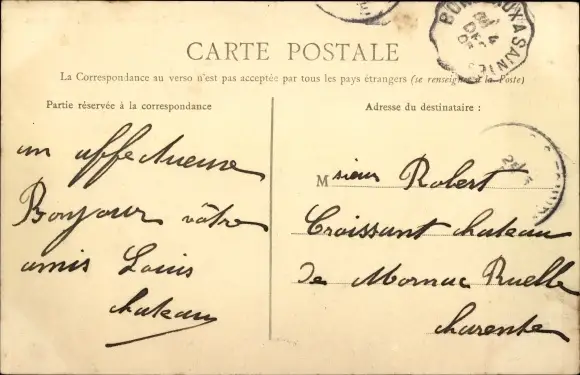 BORDEAUX A SAINTE
4
DEC
CARTE POSTALE
La Correspondance au verso n'est pas acceptée par tous les pays étrangers (se renseigner à la Poste)
Partie réservée à la correspondance
un affectueuse
Bonjour vôtre
amis Louis
chateau
Adresse du destinataire :
Msieur Robert
Croissant chateau
de Mornac Ruelle
charente